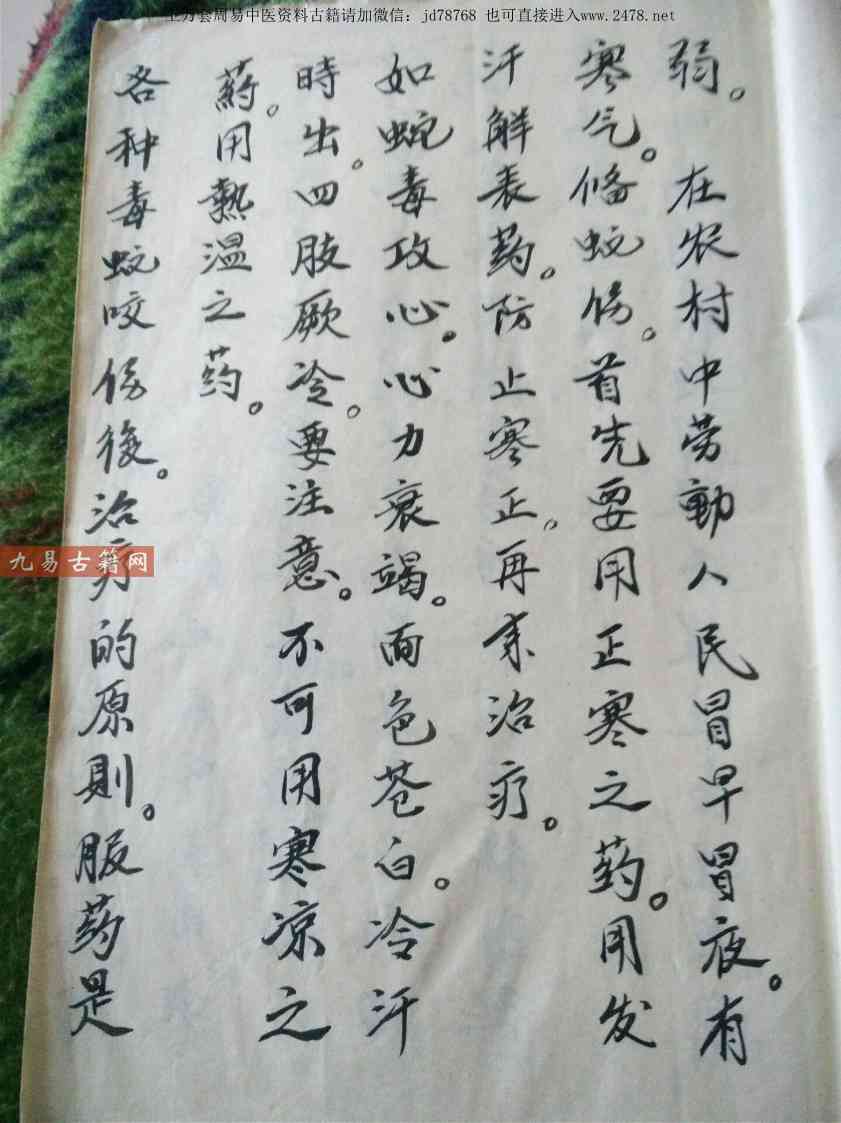 上万套周易中医资料古籍请加微信：jd78768 也可直接进入www.2478.net
弱。 在农村中劳動人民冒早冒夜。有
寒气。俻蛟伤。首先要用正寒之药。用发
汗解表药。防止寒正。再来治疗。
如蛇毒攻心。心力衰竭。面色苍白。冷汗
時出。四肢厥冷。要注意。不可用寒凉之
藥。用熱温之药。
各种毒蛟咬伤後。治疗的原則。服药是
九易古籍网